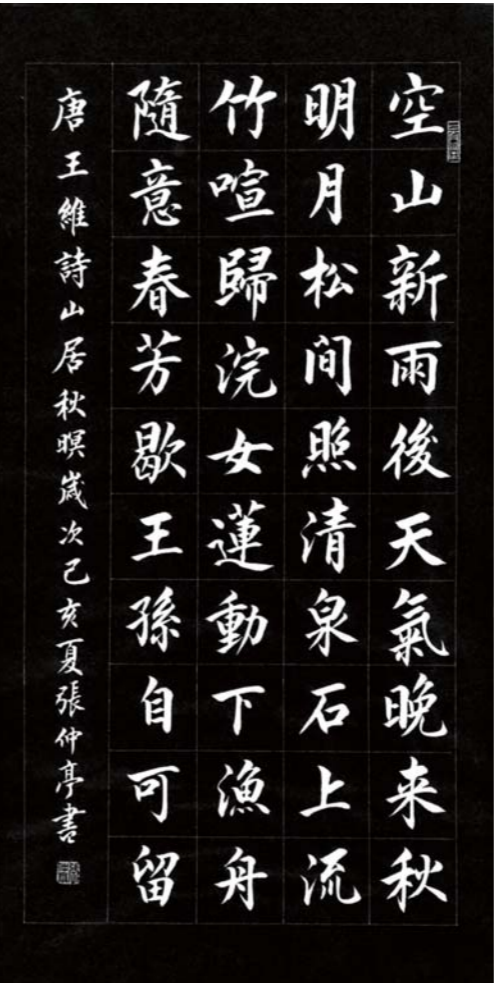 空山新雨後天氣晚来秋
明月松间照清泉石上流
竹喧歸浣女蓮動下漁舟
隨意春芳歇王孫自可留
唐王維詩山居秋暝歲次己亥夏張仲亭書